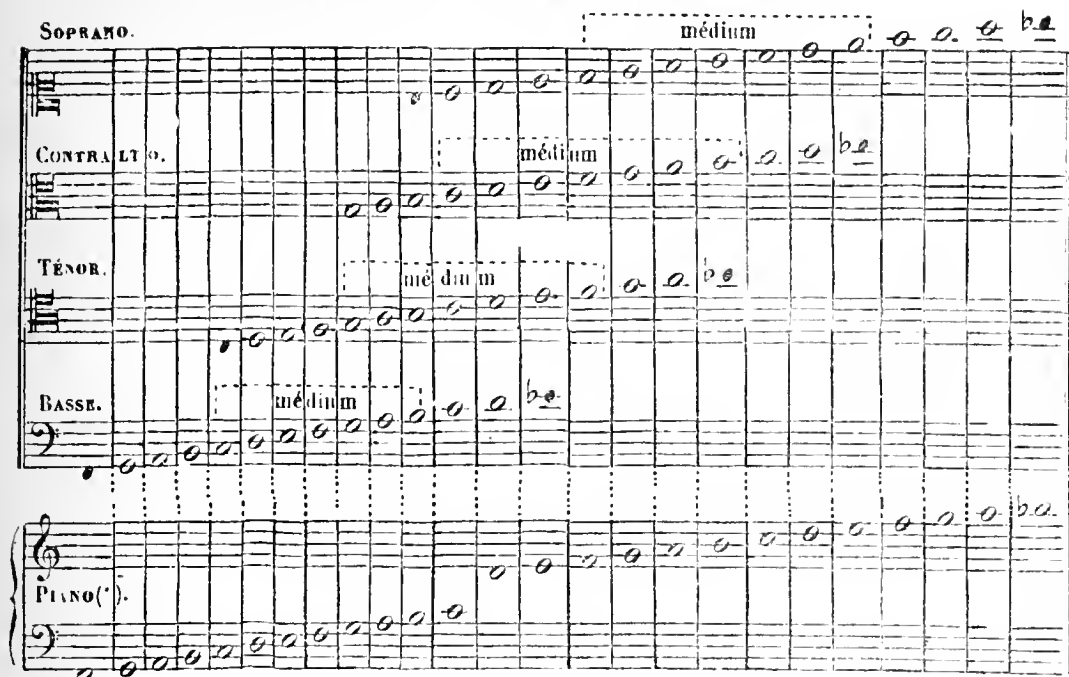 SOPRANO.
médium
CONTRALTO.
médium
TÉNOR.
médium
BASSE.
médium
PIANO(*).